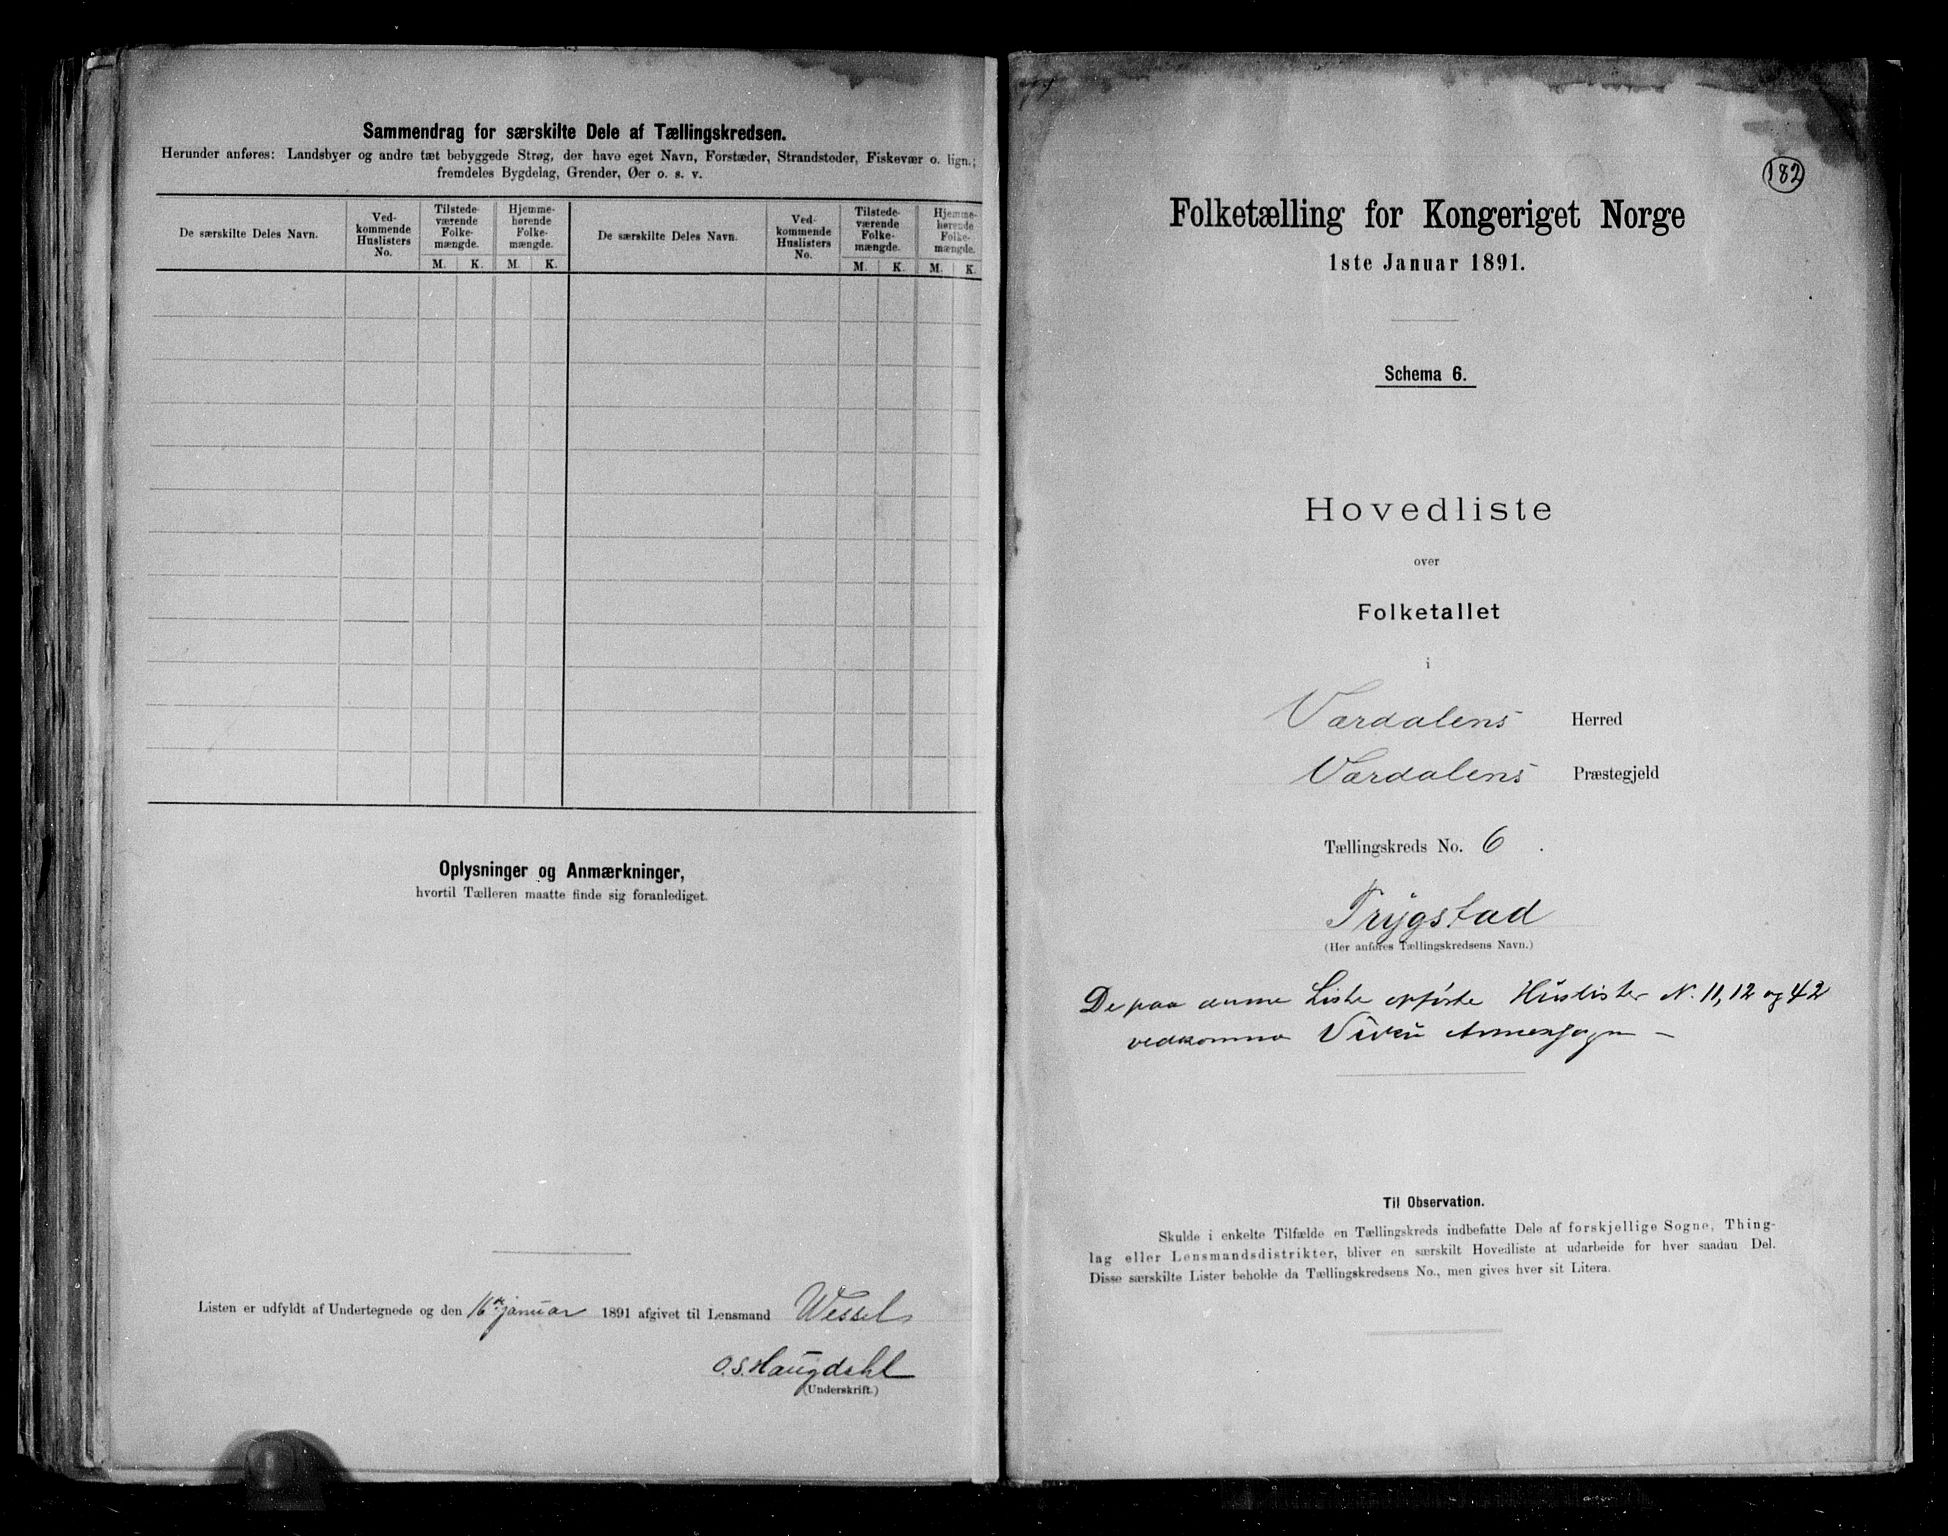 Sammendrag for særskilte Dele af Tællingskredsen.
Herunder anføres: Landsbyer og andre tæt bebyggede Strøg, der have eget Navn, Forstæder, Strandsteder, Fiskevær o. lign.;
fremdeles Bygdelag, Grender, Øer o. s. v.
De særskilte Deles Navn.
Ved-
kommende
Huslisters
No.
Tilstede-
værende
Folke-
mængde.
Hjemme-
hørende
Folke-
mængde.
M. K. M. K.
De særskilte Deles Navn.
Ved-
kommende
Huslisters
No.
Tilstede-
værende
Folke-
mængde.
Hjemme-
hørende
Folke-
mængde.
M. K. M. K.
Oplysninger og Anmærkninger,
hvortil Tælleren maatte finde sig foranlediget.
Listen er udfyldt af Undertegnede og den 16de januar 1891 afgivet til Lensmand Wessel
O.S. Haugdahl
(Underskrift.)
182
Folketælling for Kongeriget Norge
1ste Januar 1891.
Schema 6.
Hovedliste
over
Folketallet
i
Værdalens Herred
Værdalens Præstegjeld
Tællingskreds No. 6.
Trygstad
(Her anføres Tællingskredsens Navn.)
De paa denne Liste opførte Huslister N. 11, 12 og 42
vedkomme Vuku Annexsogn –
Til Observation.
Skulde i enkelte Tilfælde en Tællingskreds indbefatte Dele af forskjellige Sogne, Thing-
lag eller Lensmandsdistrikter, bliver en særskilt Hovedliste at udarbeide for hver saadan Del.
Disse særskilte Lister beholde da Tællingskredsens No., men gives hver sit Litera.